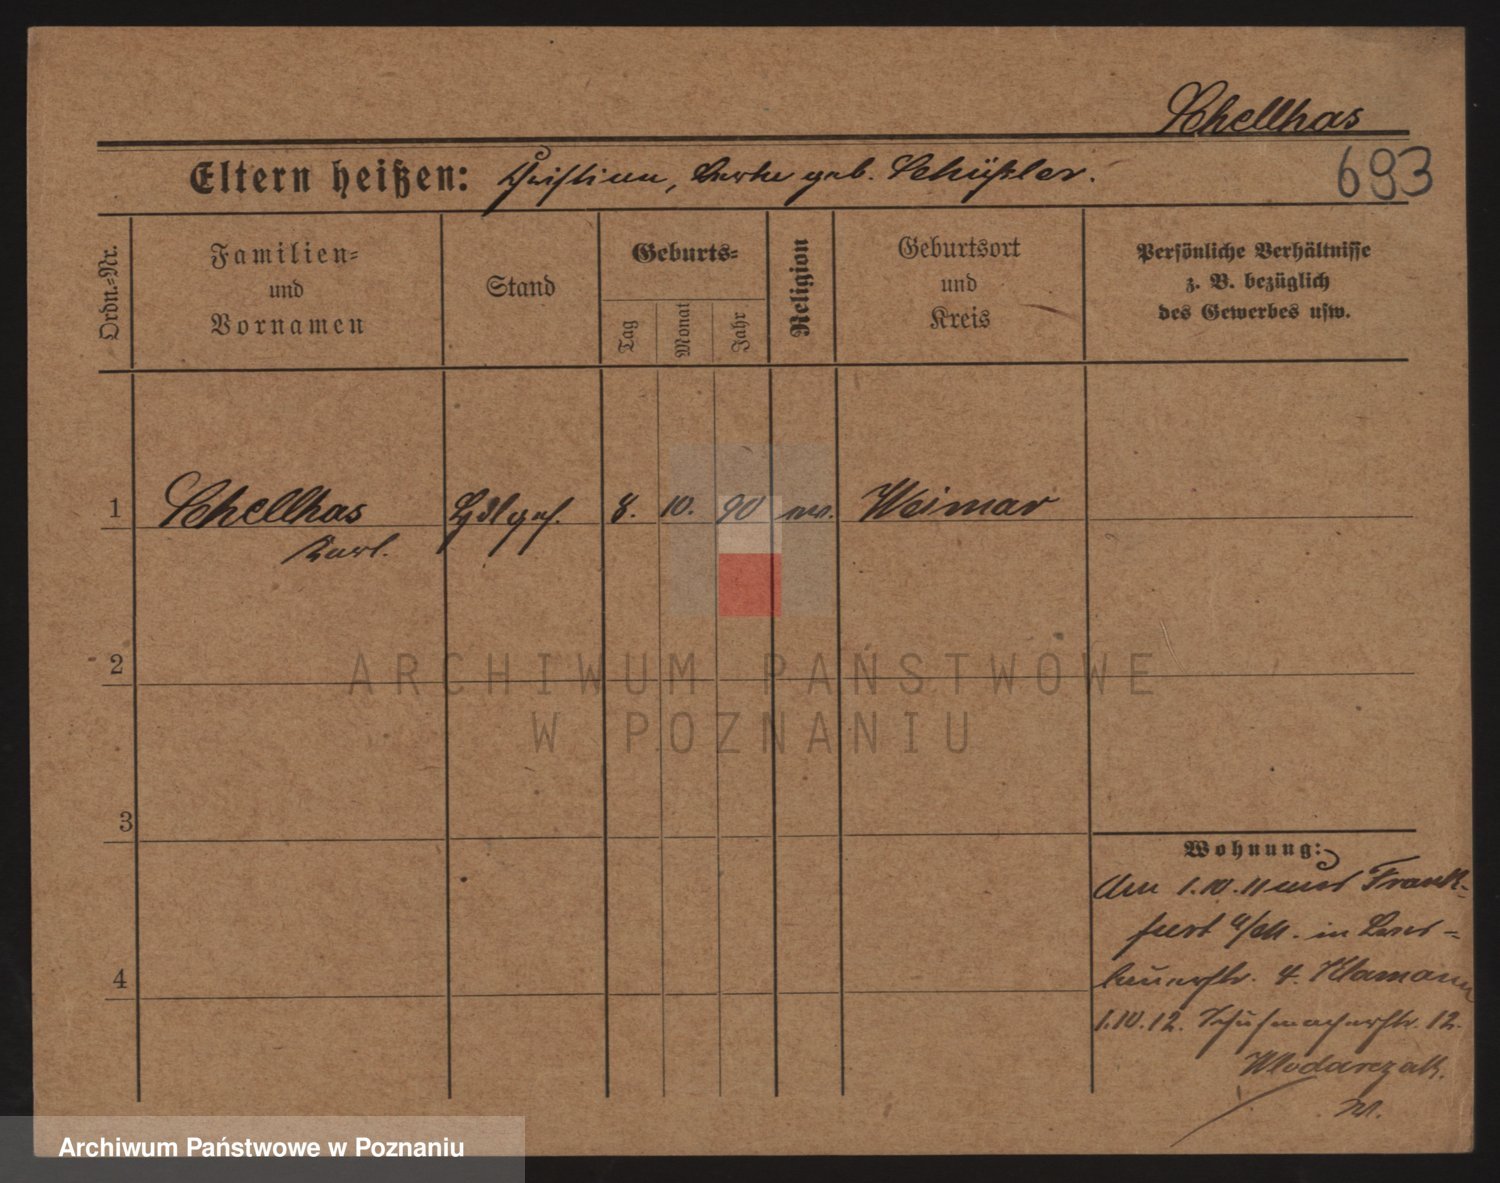 Schellhas
693
Eltern heißen: Christian, Berta geb. Schüßler.
Ordn.-Nr.
Familien-
und
Vornamen
Stand
Geburts-
Tag
Monat
Jahr
Religion
Geburtsort
und
Kreis
Persönliche Verhältnisse
z. B. bezüglich
des Gewerbes usw.
1 Schellhas 8. 10. 90 ev. Weimar
Karl.
2
ARCHIWUM PAŃSTWOWE
W POZNANIU
3
Wohnung:
Am 1.10.11 aus Frank-
furt a/M. in
4
4. Klamann
1.10.12. Schuhmacherstr. 12.
Wlodarczak.
Archiwum Państwowe w Poznaniu